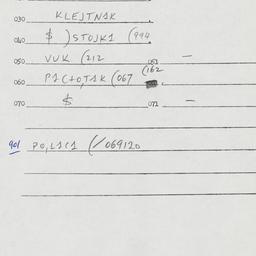 030 KLEJTNAK
040 $ )STOJKA (994
050 VUK (212 053 —
060 (067 (162
070 $ 072 —
901 (/069120